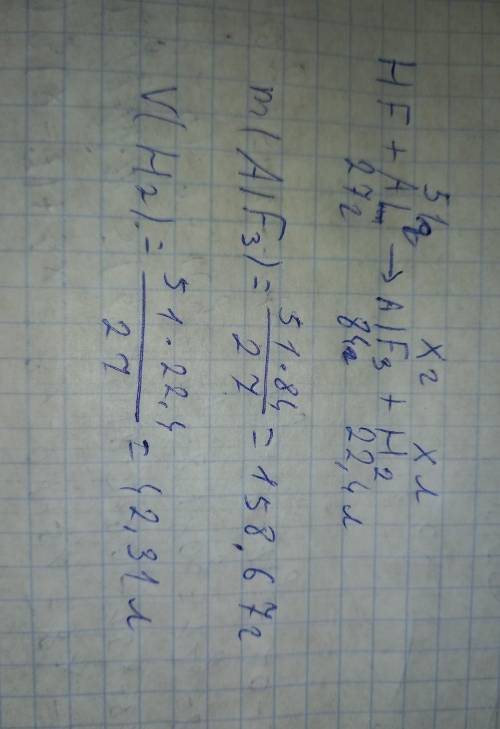 51г Xг Xл
HF + Al → AlF3 + H2
27г 84г 22,4л
m(AlF3) = 51·84 / 27 = 158,67г
V(H2) = 51·22,4 / 27 = 42,31л